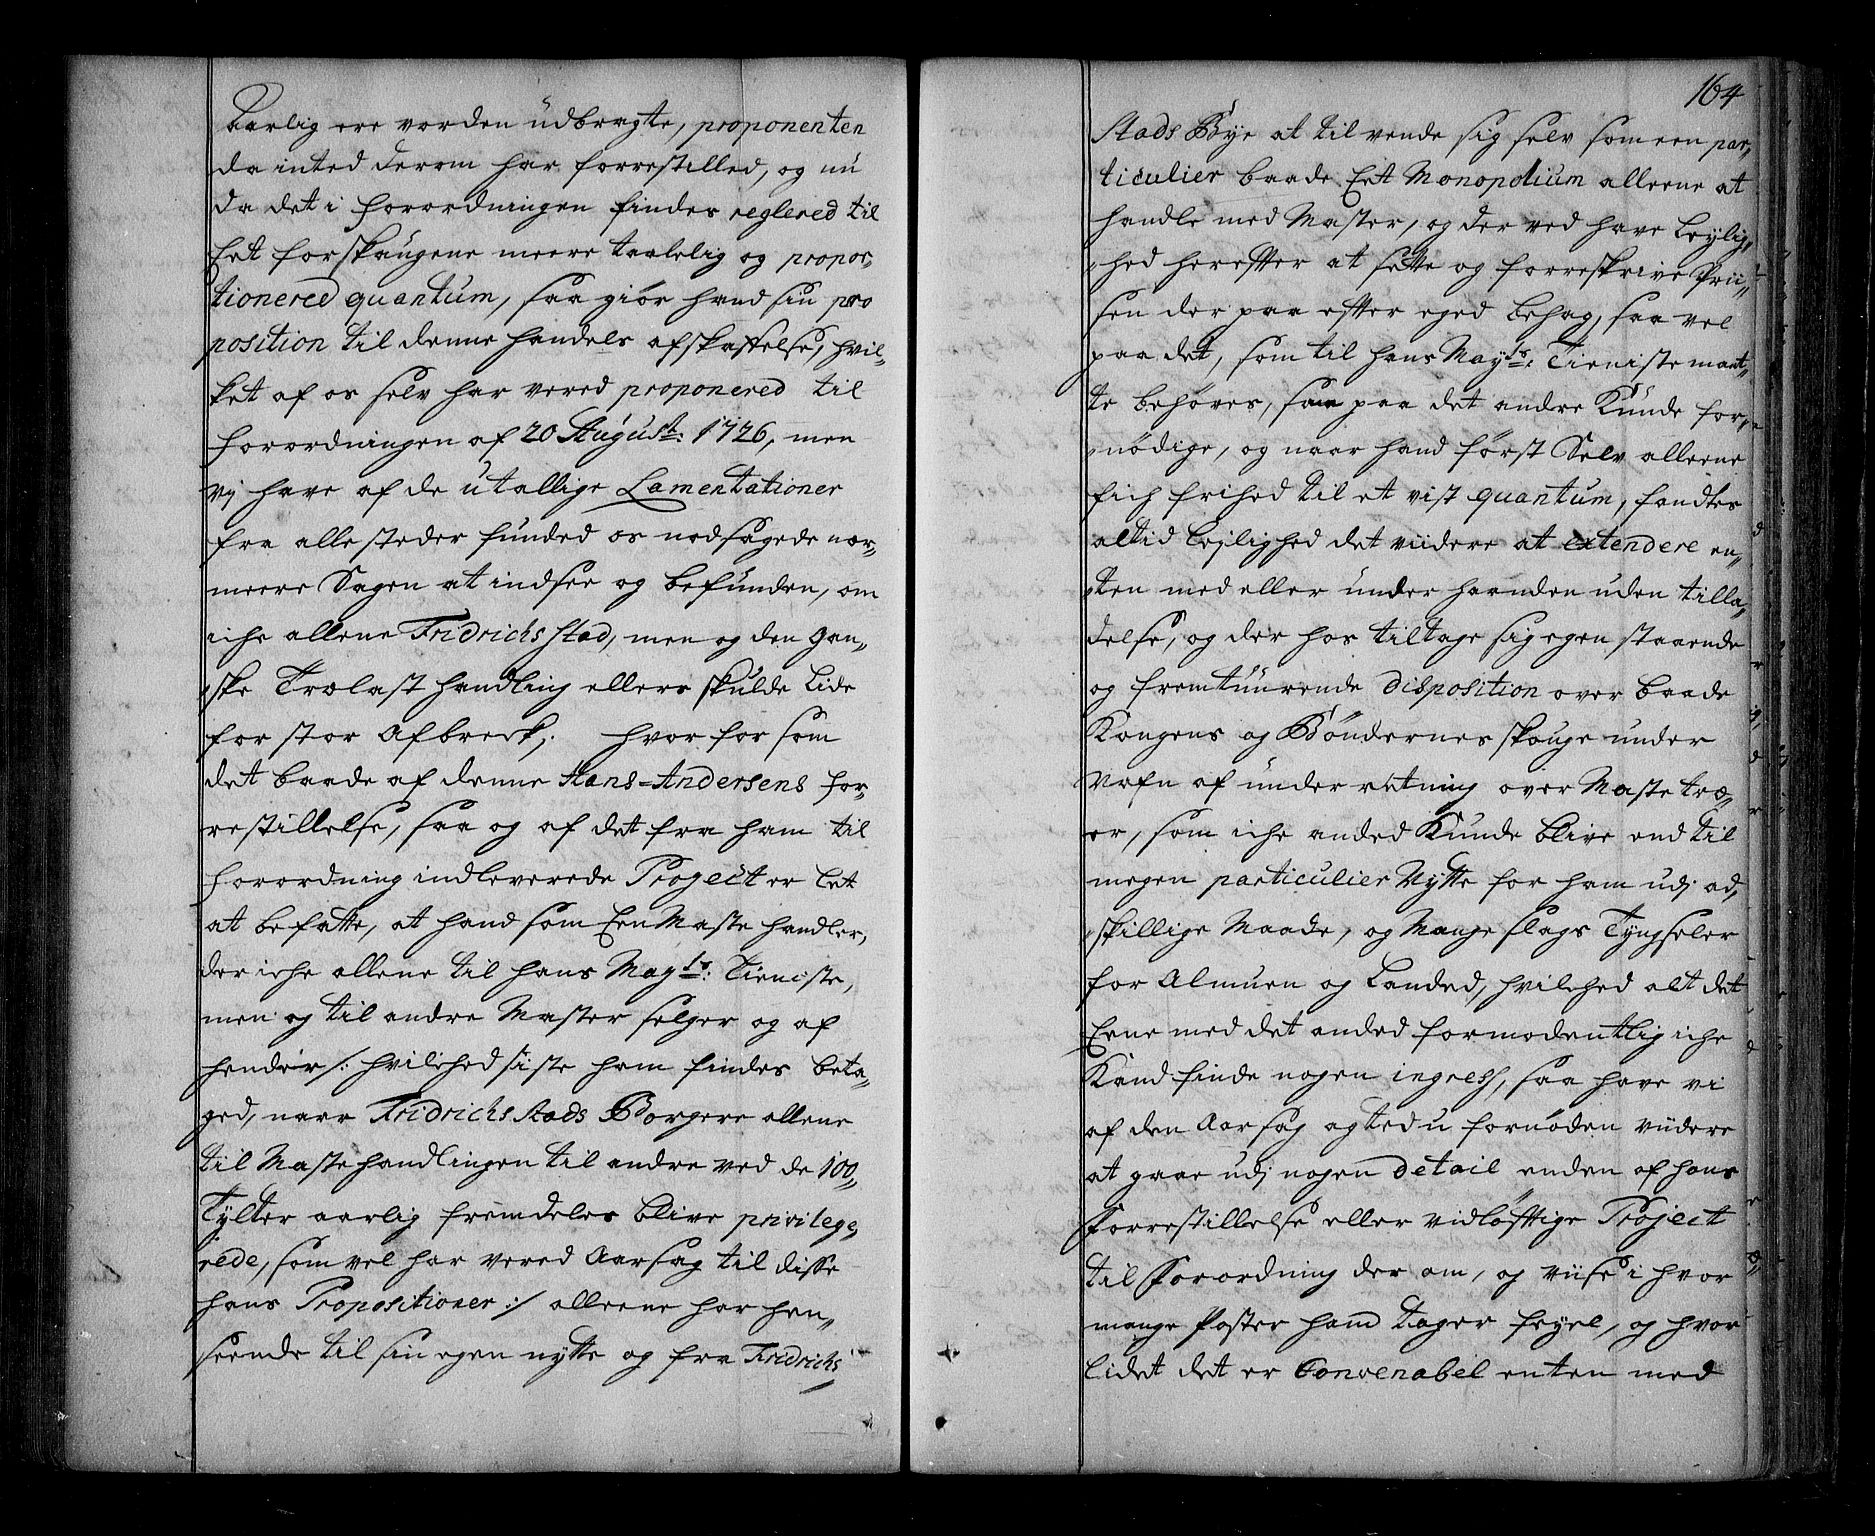 Aarlig ere vorden udbragte, proponenten
da inted derom har forrestilled, og nu
da det i forordningen findes reglered til
Eet forskaugene meere taalelig og propor„
tionered quantum, saa giør hand sin pro
position til denne handels afskaffelse, hvil„
ket af os selv har vered proponered til
forordningen af 20 August: 1726, men
vj have af de utallige Lamentationer
fra alle steder funded os nodsagede nær„
meere Sagen at indsee og befunden, om
iche allene Fridrichsstad, men og den gan„
„ske Trælast handling ellers skulde lide
for stor Afbreck; hvor for som
det baade af denne Hans=Andersens for„
restillelse, saa og af det fra ham til
forordning indleverede Project er let
at befatte, at hand som Een Maste handler,
der iche allene til hans Mayts: Tieniste,
men og til andre Master selger og af
hender /: hvilched siste ham findes beta„
ged, naar Fridrichsstads Borgere allene
til Mastehandlingen til andre ved de 100„
Tylter aarlig fremdeles blive privilege„
rede, som vel har vered Aarsag til disse
hans Propositioner :/ alleene har hen„
seende til sin egen nytte og fra Fridrichs
164
Stads Bye at tilvende sig selv som een par„
ticulier baade Eet Monopolium alleene at
handle med Master, og der ved have Leylig„
„hed herefter at sette og forreskrive Prii„
sen der paa efter eged behag, saa vel
paa det, som til hans Mayts: Tieniste maat„
te behøves, som paa det andre Kunde for„
„nødige, og naar hand først Selv alleene
fich frihed til et vist quantum, fandtes
altid lejlighed det viidere at extendere en„
„ten med eller under haanden uden tilla„
delse, og der hos tiltage sig egen staaende
og fremtuurende disposition over baade
Kongens og Bøndernes skouge under
Nafn af under retning over Maste træ„
er, som iche anded Kunde blive end til
megen particulier Nytte for ham udj ad„
„skillige Maade, og Mange slags Tyngseler
for Almuen og Landed, hvilched alt det
Eene med det anded formodentlig iche
Kand finde nogen ingress, saa have vi
af den Aarsag agted u fornøden viidere
at gaae udj nogen detail enden af hans
Forrestillelse eller vidløftige Project
til Forordning der om, og viise i hvor
mange Poster hand tager feyel, og hvor
lidet det er Convenabel enten med